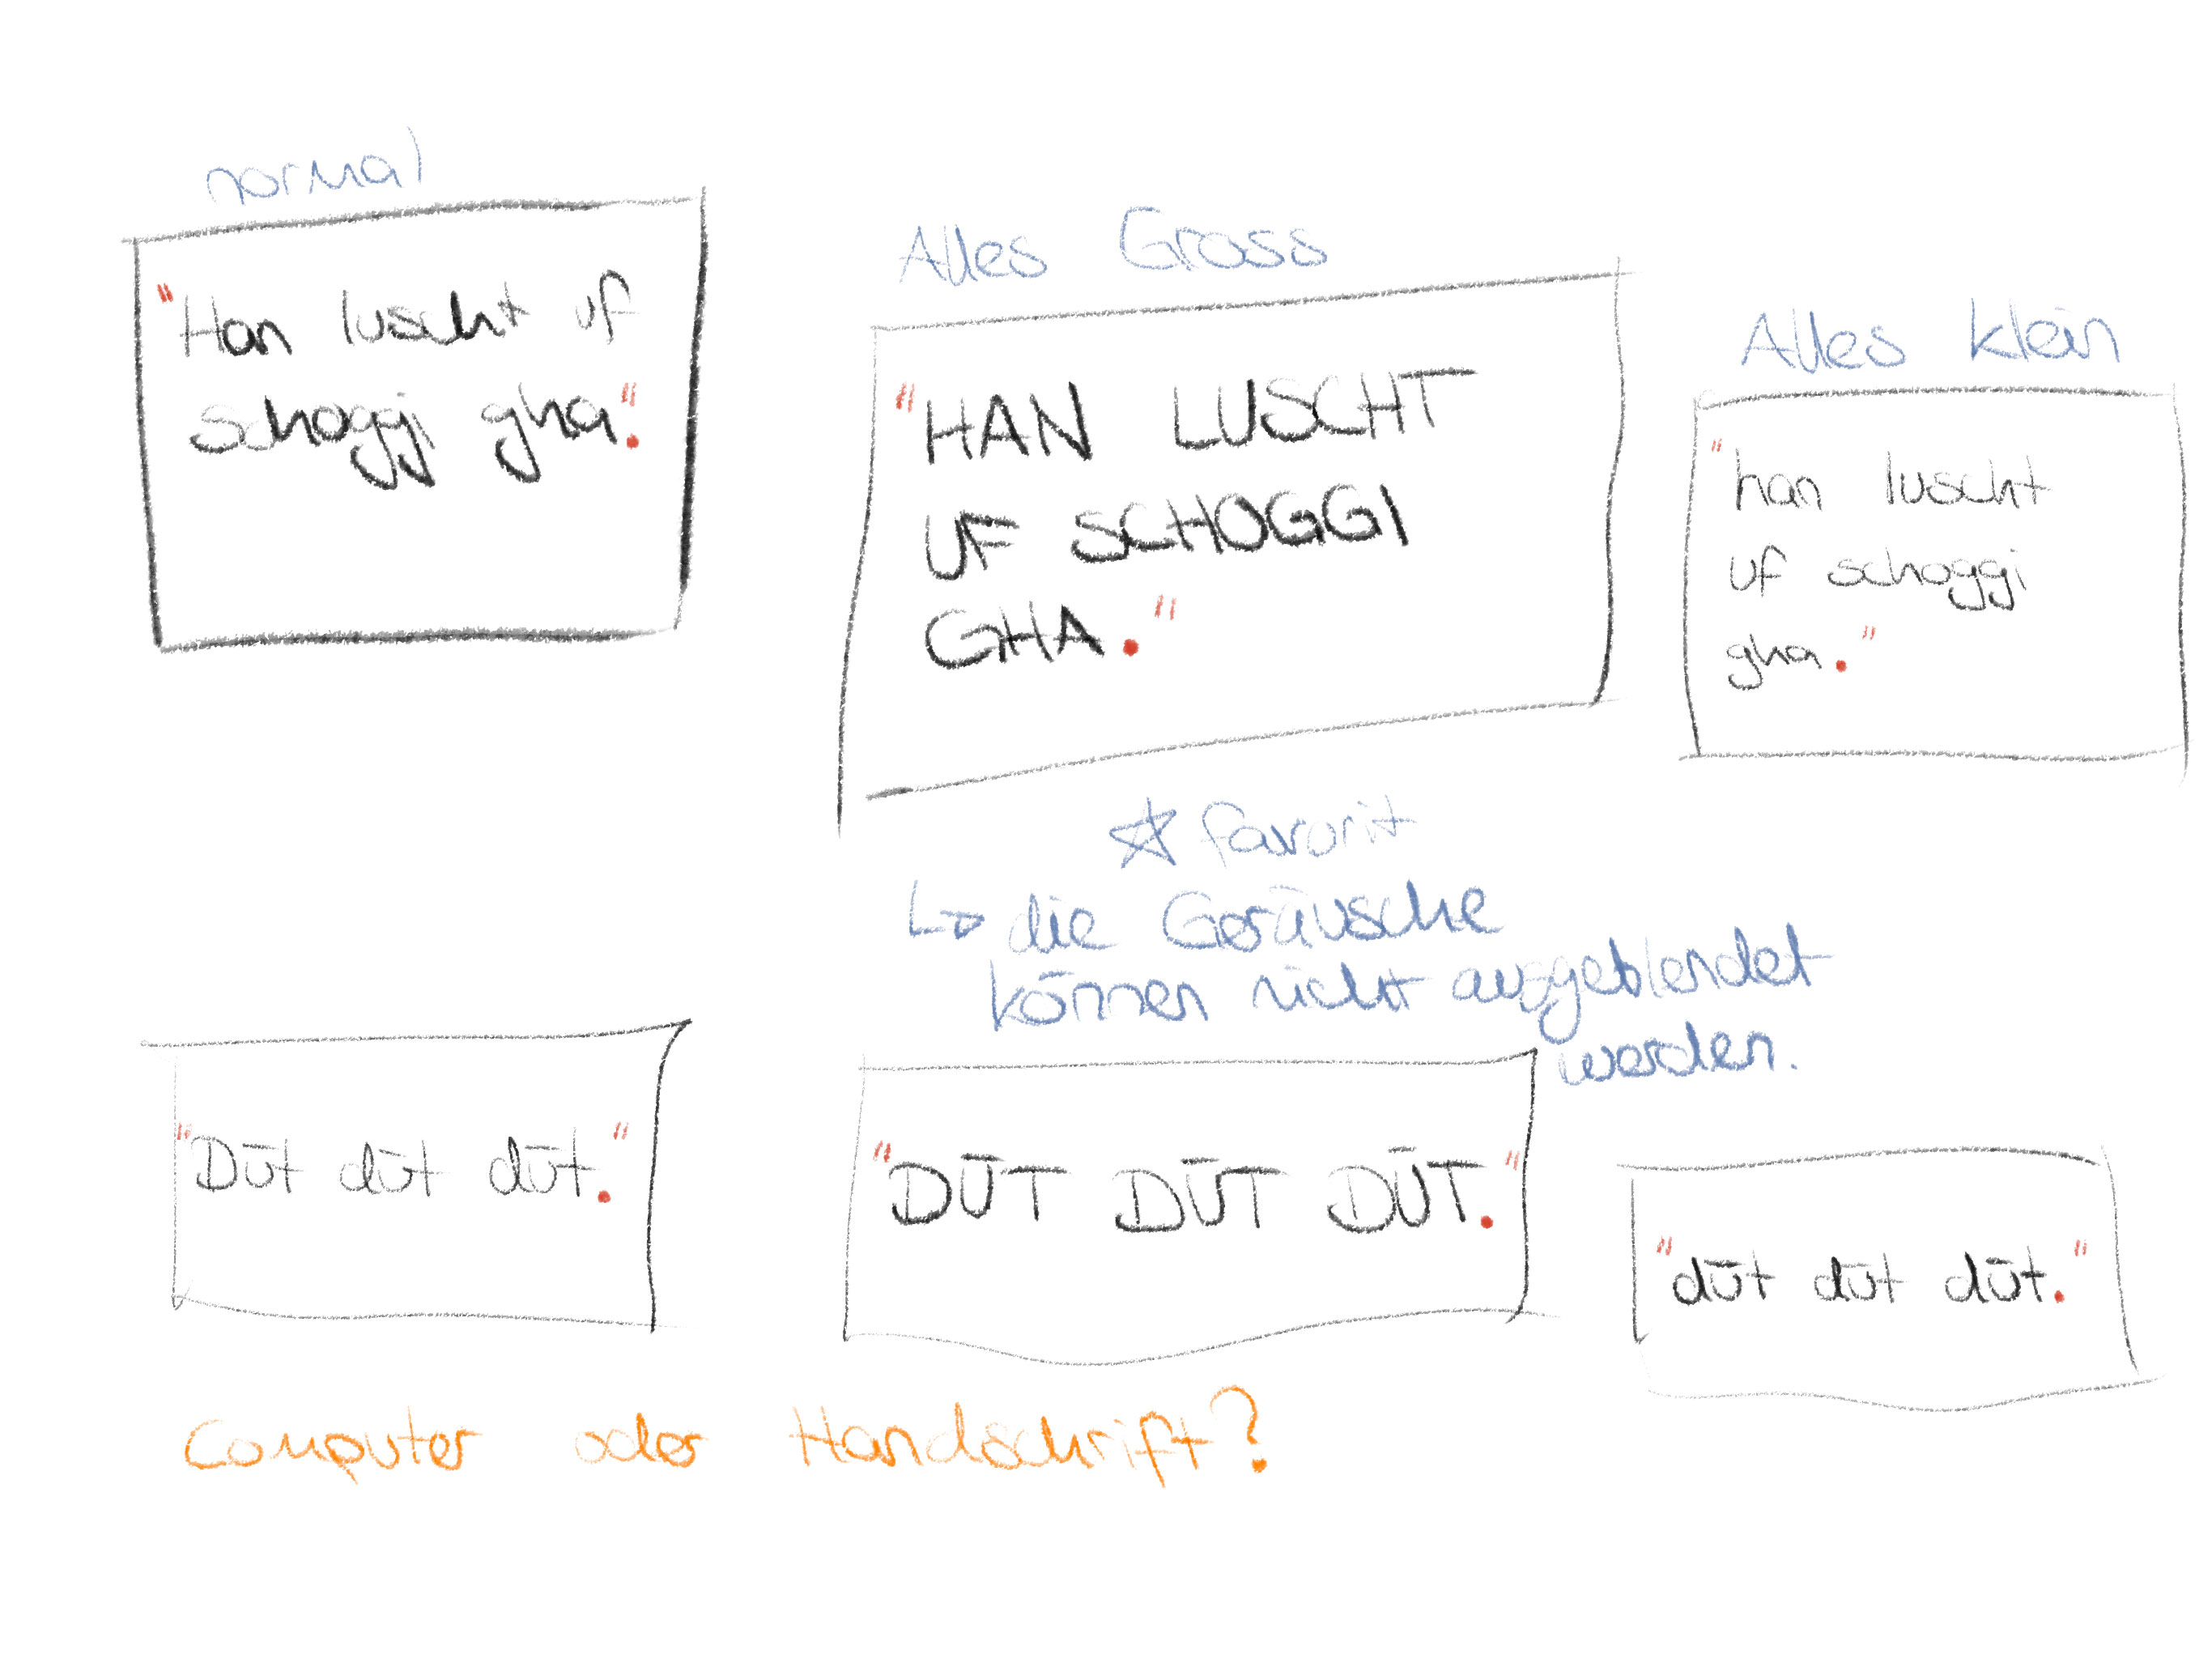 normal
"Han luscht uf
schoggi gha".
Alles Gross
"HAN LUSCHT
UF SCHOGGI
GHA."
Alles klein
"han luscht
uf schoggi
gha."
☆ favorit
↳ die Geräusche
können nicht ausgeblendet
werden.
"Düt düt düt."
"DÜT DÜT DÜT."
"düt düt düt."
Computer oder Handschrift?